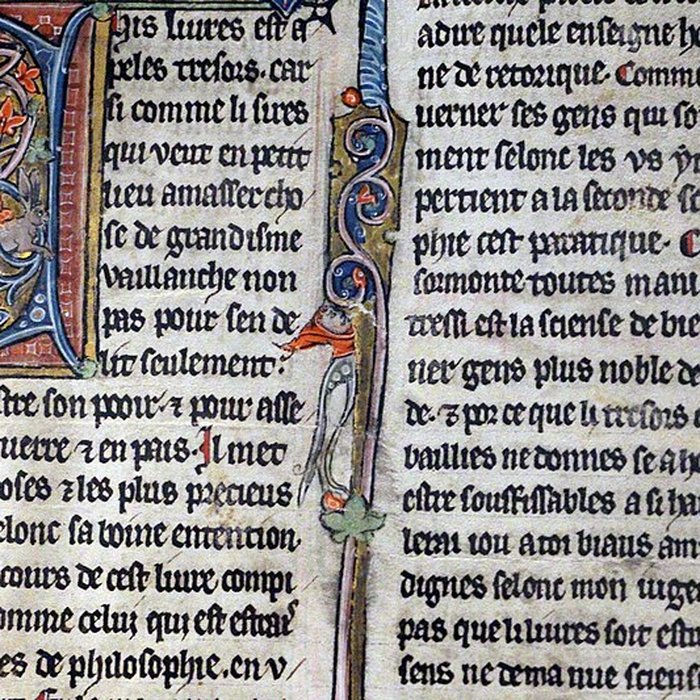 his liures est a
peles tresors. car
si comme li sires
qui veut en petit
lieu amasser cho
se de grandisme
vaillanche non
pas pour sen de
lit seulement.
stre son pooir. ⁊ pour asse
uerre ⁊ en pais. Il met
oses ⁊ les plus precieus
elonc sa boine entention.
cours de cest liure compi
omme celui qui est estrai
es de philosophie. en v
adire quele enseigne
ne de retorique. Comm
uerner ses gens qui so
ment selonc les us
pertient a la seconde
phie cest pratique.
sormonte toutes mani
tressi est la sciense de
ner gens plus noble de
de. ⁊ por ce que li tresors
baillies ne donnes se a
estre souffissables a si
lerai iou a toi biaus am
dignes selonc mon iuge
pas que li liures soit estr
sens ne de ma nue sciens